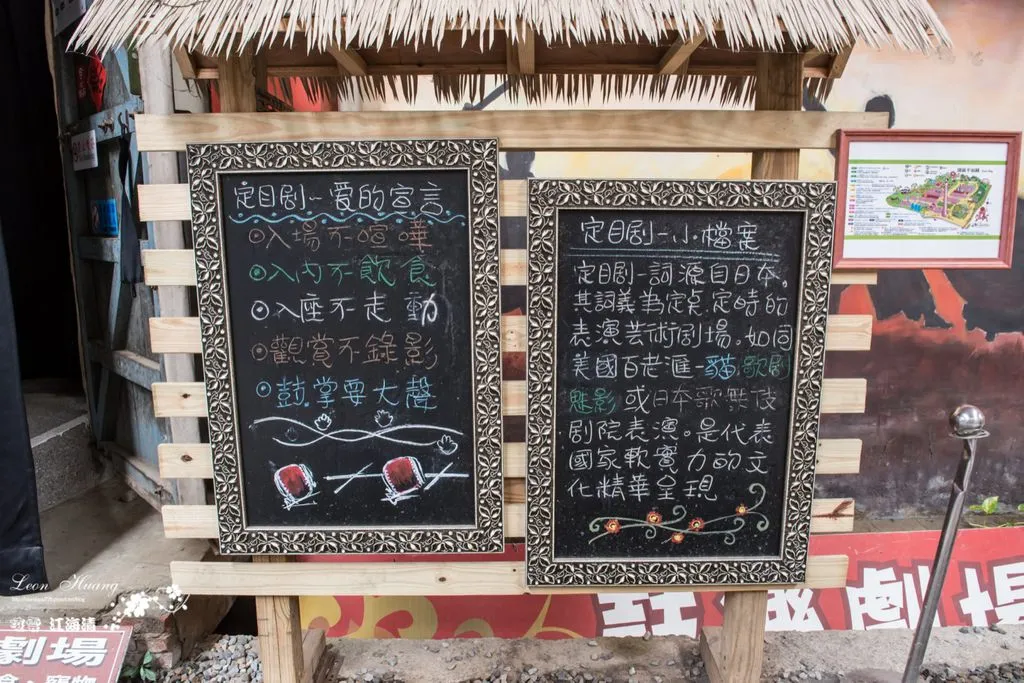 定目剧~爱的宣言
入場不喧嘩
入內不飲食
入座不走動
觀賞不錄影
鼓掌要大聲
定目剧-小檔案
定目剧-詞源自日本,
其詞義為定桌.定時的
表演芸術剧場。如同
美國百老滙-貓.歌剧
魅影 或日本歌舞伎
剧院表演。是代表
國家軟實力的文
化精華呈現
劇場
Leon Huang
江海清
劇場